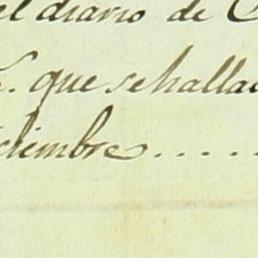 el diario de C
. que se halla
ciembre.....